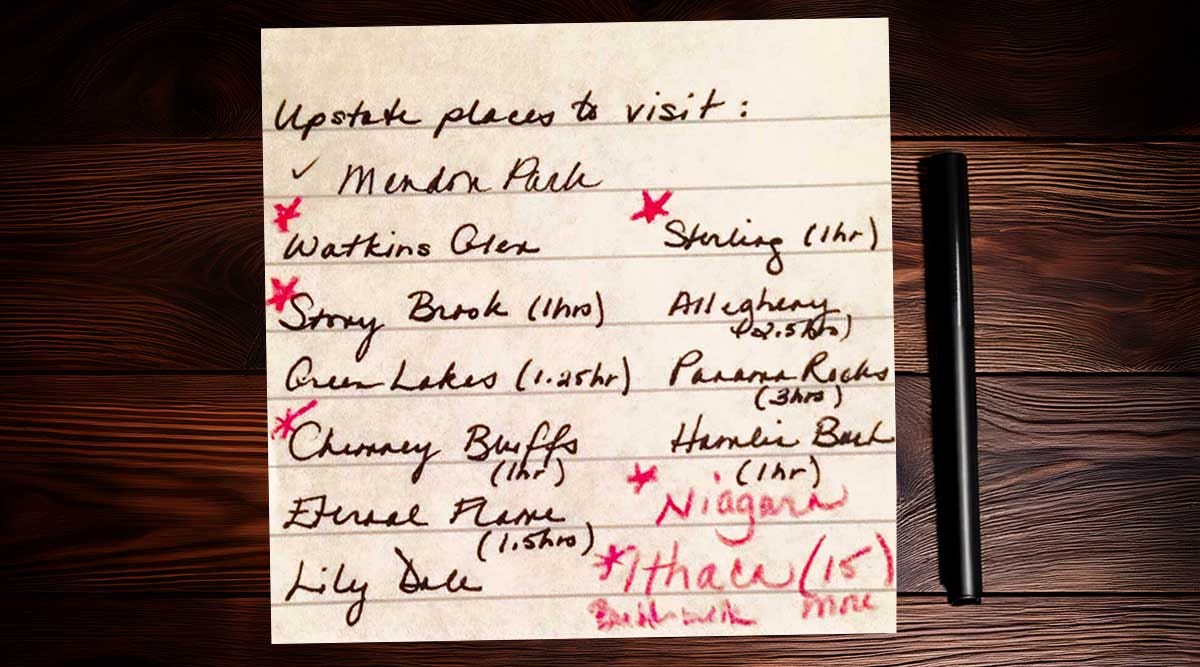 Upstate places to visit:
✓ Mendon Park
Watkins Glen
Stony Brook (1hrs)
Green Lakes (1.25hr)
Chimney Bluffs
(1hr)
Eternal Flame
(1.5hrs)
Lily Dale
Sterling (1hr)
Allegheny
(2.5hrs)
Panama Rocks
(3hrs)
Hamlin Bach
(1hr)
Niagara
Ithaca (15
more